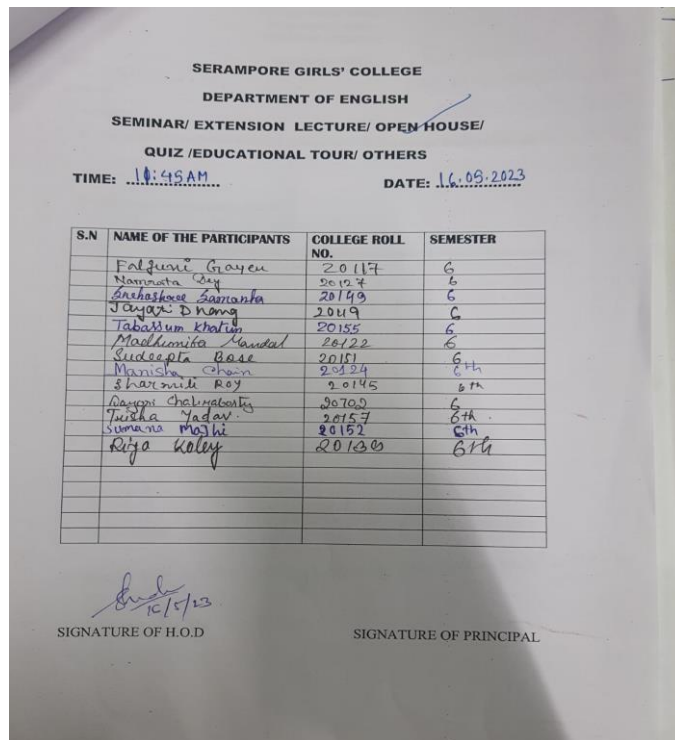 SERAMPORE GIRLS' COLLEGE
DEPARTMENT OF ENGLISH
SEMINAR/ EXTENSION LECTURE/ OPEN HOUSE/
QUIZ /EDUCATIONAL TOUR/ OTHERS
TIME: 10:45AM DATE: 16.05.2023
S.N NAME OF THE PARTICIPANTS COLLEGE ROLL NO. SEMESTER
Falguni Grayen 20117 6
Namrata Dey 20127 6
Snehashree Samanta 20149 6
Jayati Dhang 6
Tabassum Khatun 20155 6
Madhumita Mandal 20122 6
Sudeepta Bose 20151 6
Manisha Chain 20124 6th
Sharmili Roy 20145 6th
Chakraborty 20702 6
Trisha Yadav. 20157 6th.
Sumana Majhi 20152 6th
Riya Koley 6th
16/5/23
SIGNATURE OF H.O.D SIGNATURE OF PRINCIPAL